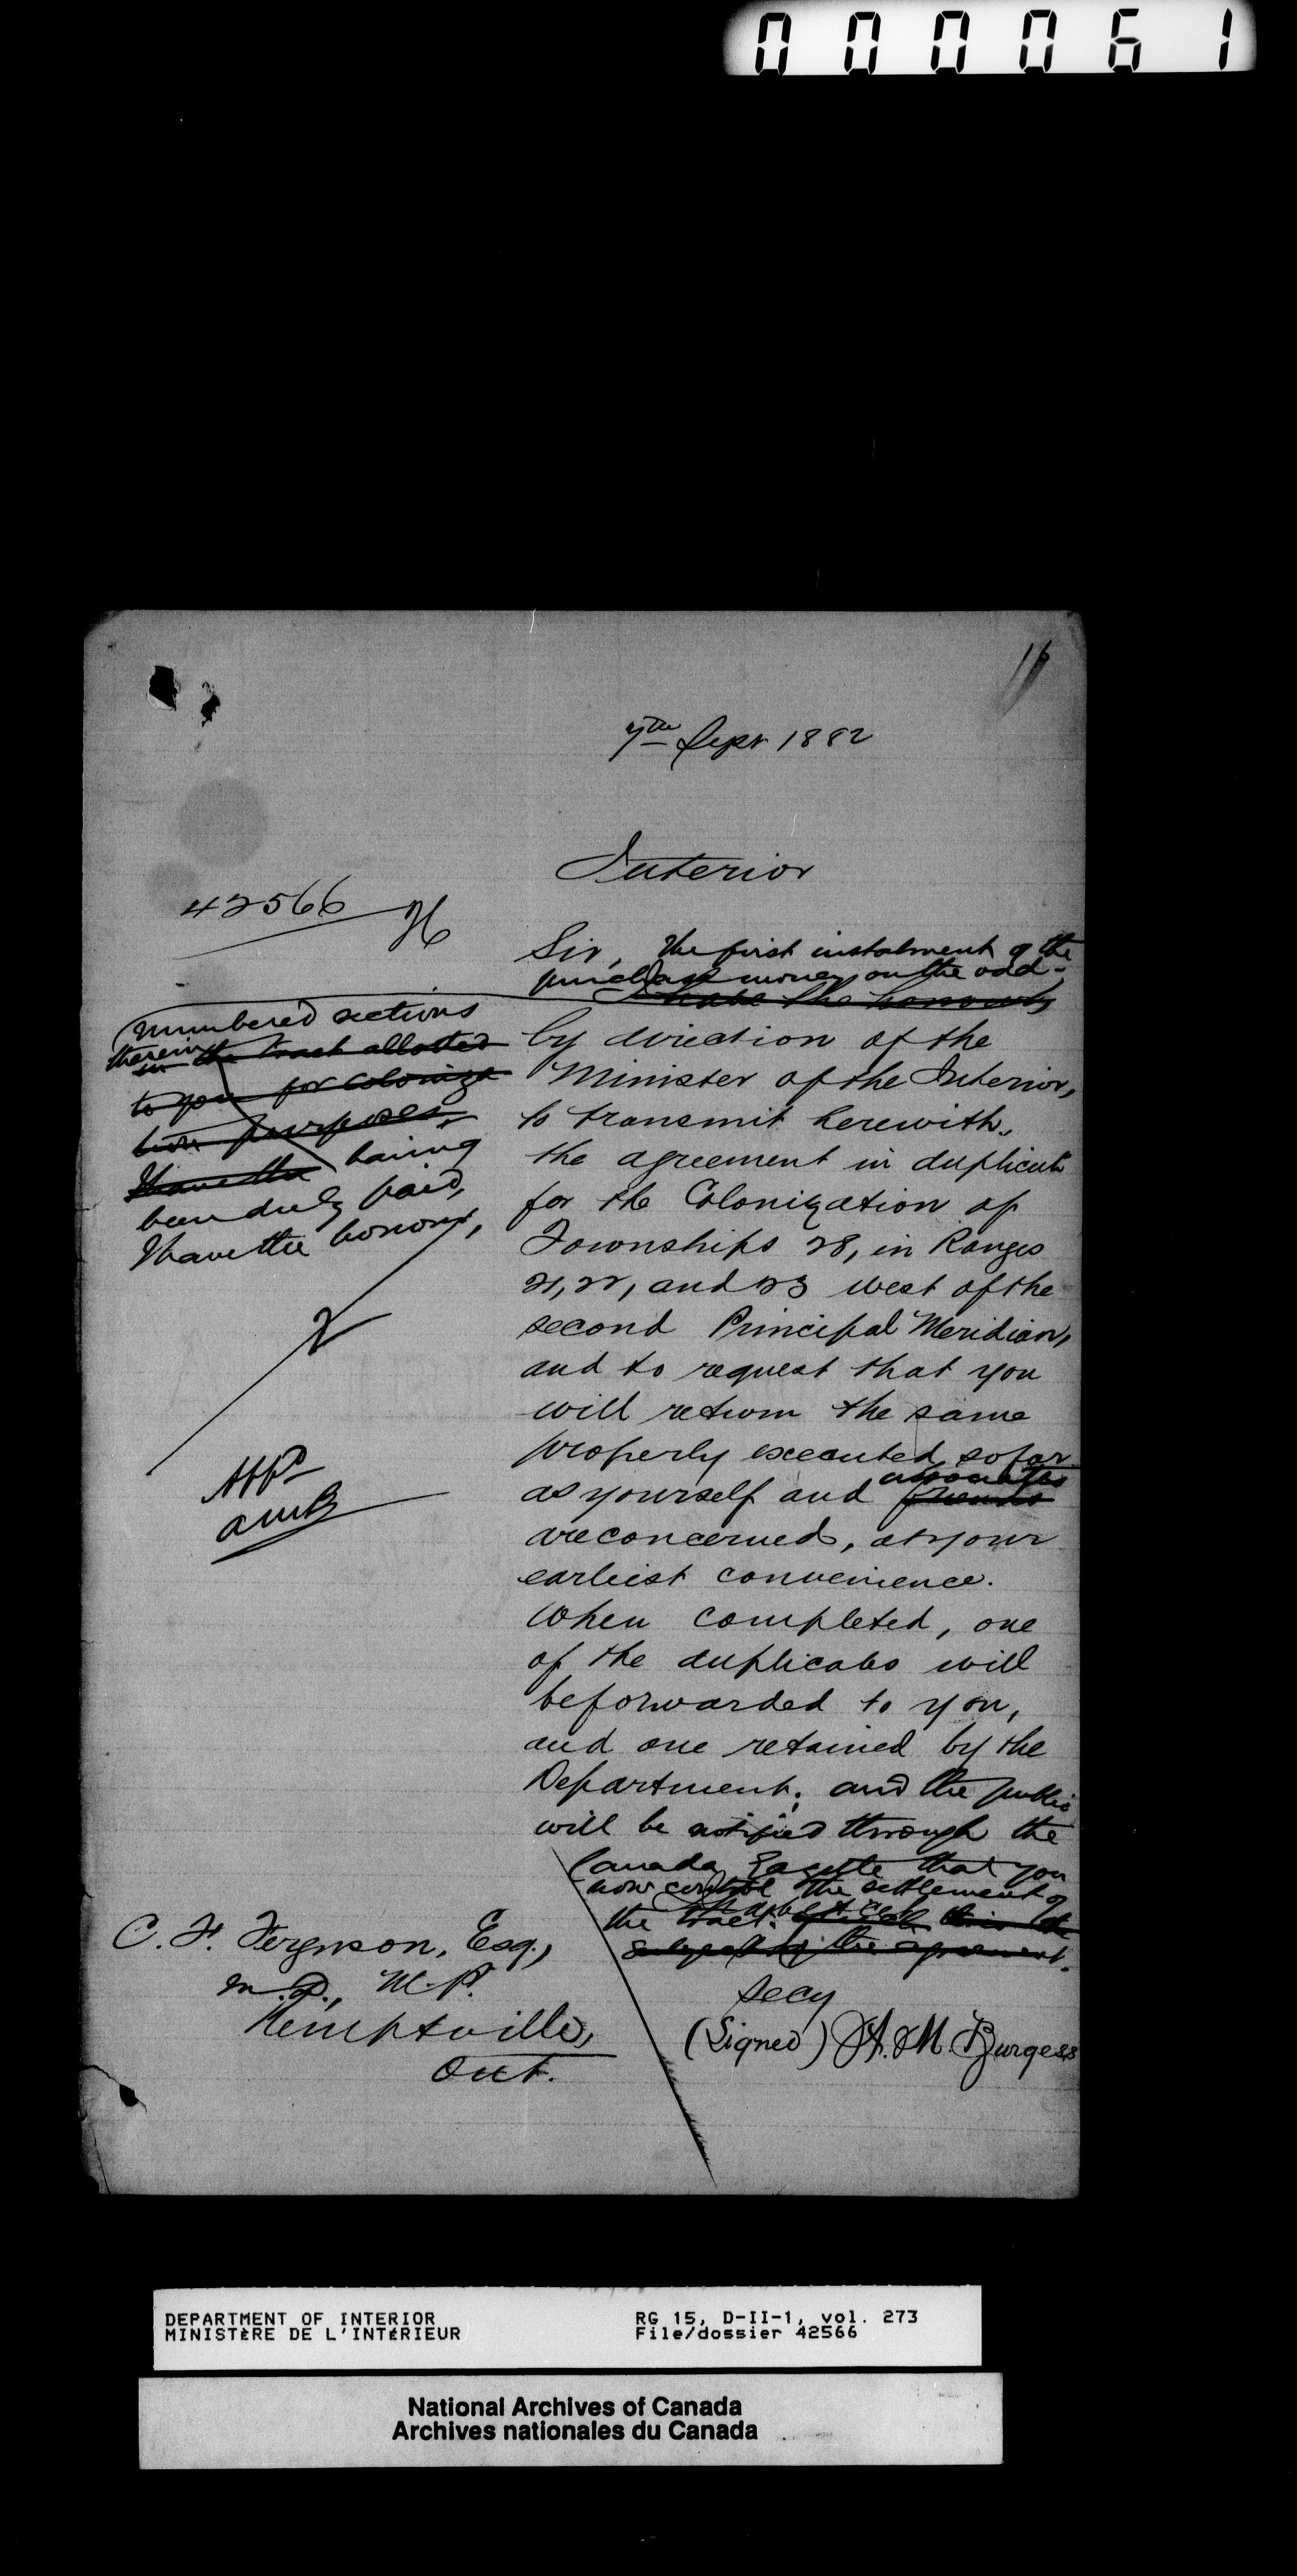 000061
16
7th Sept 1882
Interior
42566
Sir, The first instalment of the
purchase money on the odd-
I have the honour
numbered sections
therein
in the tract allotted
to you for coloniza
tion purposes,
I have the having
been duly paid,
I have the honour,
by direction of the
Minister of the Interior,
to transmit herewith,
the agreement in duplicate
for the Colonization of
Townships 28, in Ranges
21, 22, and 23 west of the
second Principal Meridian,
and to request that you
will return the same
properly executed, so far
associates
as yourself and friends
are concerned, at your
earliest convenience.
When completed, one
of the duplicates will
be forwarded to you,
and one retained by the
Department; and the public
will be notified through the
Canada Gazette that you
now control the settlement of
the tract.
subject to the agreement.
AMB
C. F. Ferguson, Esq.,
M.D., M.P.
Kemptville,
Ont.
Secy
(Signed) A. M. Burgess
DEPARTMENT OF INTERIOR
MINISTÈRE DE L'INTÉRIEUR
RG 15, D-II-1, vol. 273
File/dossier 42566
National Archives of Canada
Archives nationales du Canada